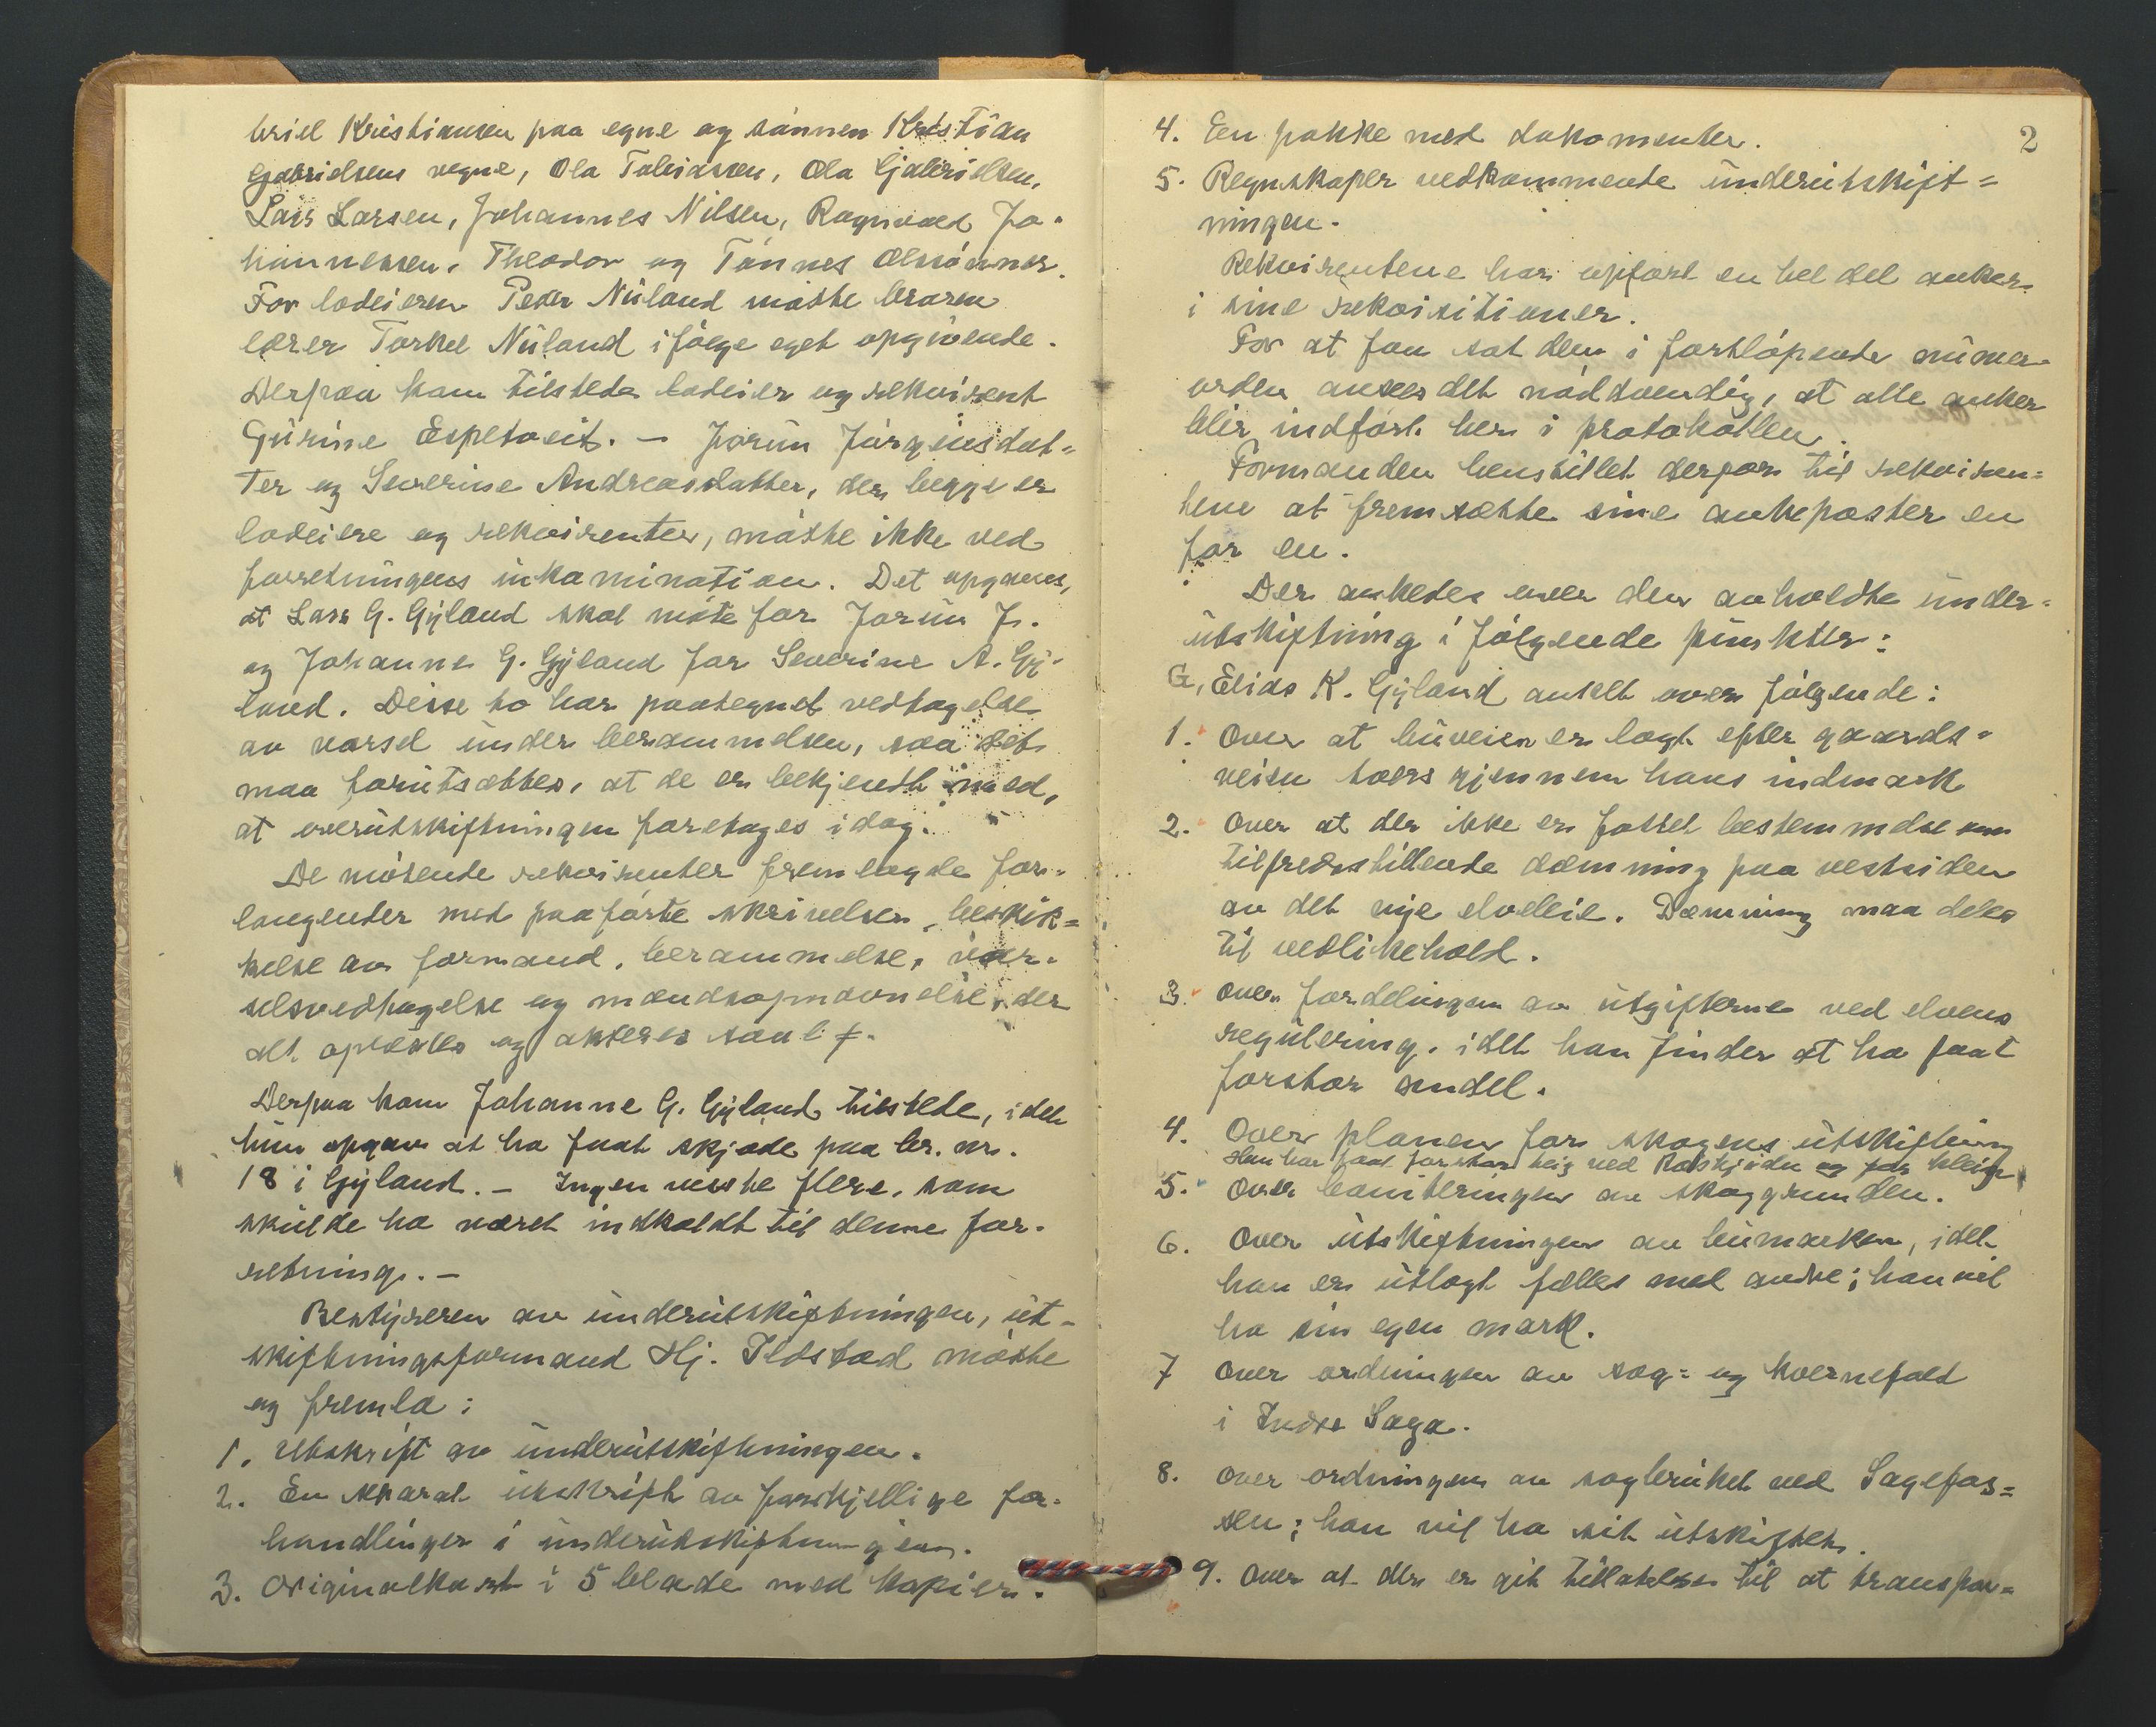 briel Kristiansen paa egne og sønnen Kristian
Gabrielsens vegne, Ola Tobiassen, Ola Gabrielsen,
Lars Larsen, Johannes Nilsen, Ragnvald Jo-
hannessen, Theodor og Tønnes Olssønner.
For lodeieren Peder Nuland møtte broren
lærer Torkel Nuland ifølge eget opgivende.
Derpaa kom tilstede lodeier og rekvirent
Gurine Espetveit. – Jorun Jørgensdat-
ter og Severine Andreasdatter, der begge er
lodeiere og rekvirenter, møtte ikke ved
forretningens inkamination. Det opgaves,
at Lars G. Gyland skal møte for Jorun J.
og Johanne G. Gyland for Severine A. Gy-
land. Disse to har paategnet vedtagelse
av varsel under berammelsen, saa det
maa forutsættes, at de er bekjendt med,
at overutskiftningen foretages idag.
De møtende rekvirenter fremlagde for-
langender med paaførte skrivelser, beskik-
kelse av formand, berammelse, var-
selsvedtagelse og mændsopnævnelse, der
alt oplæstes og akteres
Derpaa kom Johanne G. Gyland tilstede, idet
hun opgav at ha faat skjøde paa br. nr.
18 i Gyland. – Ingen visste flere, som
skulde ha været indkaldt til denne for-
retning. –
Bestyreren av underutskiftningen, ut-
skiftningsformand Hj. Ildstad møtte
og fremla:
1. Utskrift av underutskiftningen.
2. En separat utskrift av forskjellige for-
handlinger i underutskiftningen.
3. Originalkart i 5 blade med kopier.
2
4. En pakke med dokomenter.
5. Regnskaper vedkommende underutskift=
ningen.
Rekvirentene har opført en hel del anker
i sine rekvisitioner.
For at faa sat dem i fortløpende numer-
orden ansees det nødvendig, at alle anker
blir indført her i protokollen.
Formanden henstillet derfor til rekviren=
tene at fremsætte sine ankeposter en
for en.
Der ankedes over den avholdte under=
utskiftning i følgende punkter:
G, Elias K. Gyland anket over følgende:
1. Over at buveien er lagt efter gaards=
veien tvers gjennem hans indmark
2. Over at der ikke er fattet bestemmelse om
tilfredsstillende dæmning paa vestsiden
av det nye elveleie. Dæmning maa deles
til vedlikehold.
3. Over fordelingen av utgifterne ved elvens
regulering, idet han finder at ha faat
forstor andel.
4. Over planen for skogens utskiftning
Han har faat forstor teig ved Rosskjøden og for
5. Over boniteringen av skoggrunden.
6. Over utskiftningen av bumarken, idet
han er utlagt fælles med andre; han vil
ha sin egen mark.
7 Over ordningen av sag= og kvernefald
i Indre Saga.
8. Over ordningen av sagbruket ved Sagefos=
sen; han vil ha sit utskiftet.
9. Over at der er git tillatelse til at transpor=